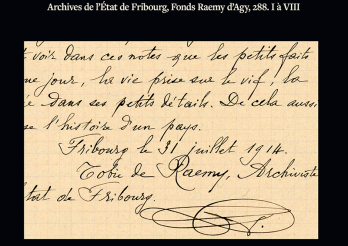 Archives de l'État de Fribourg, Fonds Raemy d'Agy, 288. I à VIII
voir dans ces notes que les petits faits
jour, la vie prise sur le vif, la
dans ses petits détails. De cela aussi
l'histoire d'un pays.
Fribourg le 31 juillet 1914.
Tobie de Raemy, Archiviste
de Fribourg.